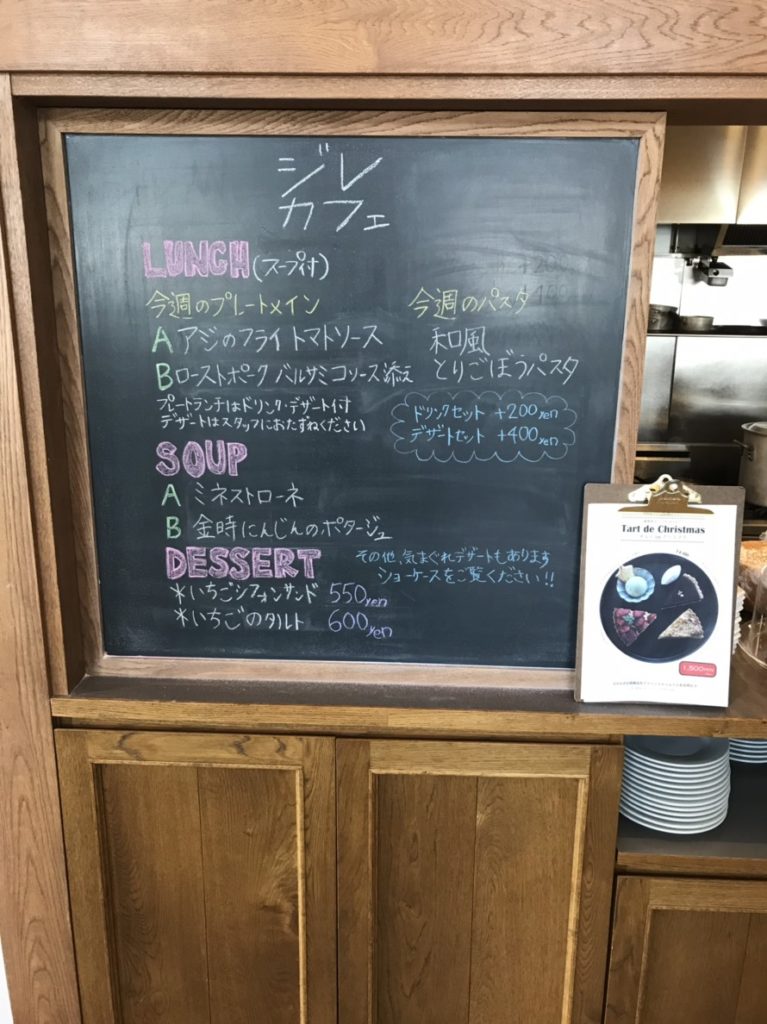 ジレ
カフェ
LUNCH (スープ付)
今週のプレートメイン
A アジのフライ トマトソース
B ローストポーク バルサミコソース添え
プレートランチはドリンク・デザート付
デザートはスタッフにおたずねください
今週のパスタ
和風
とりごぼうパスタ
ドリンクセット +200yen
デザートセット +400yen
SOUP
A ミネストローネ
B 金時にんじんのポタージュ
DESSERT
*いちごシフォンサンド 550yen
*いちごのタルト 600yen
その他、気まぐれデザートもあります
ショーケースをご覧ください!!
Tart de Christmas
1,500